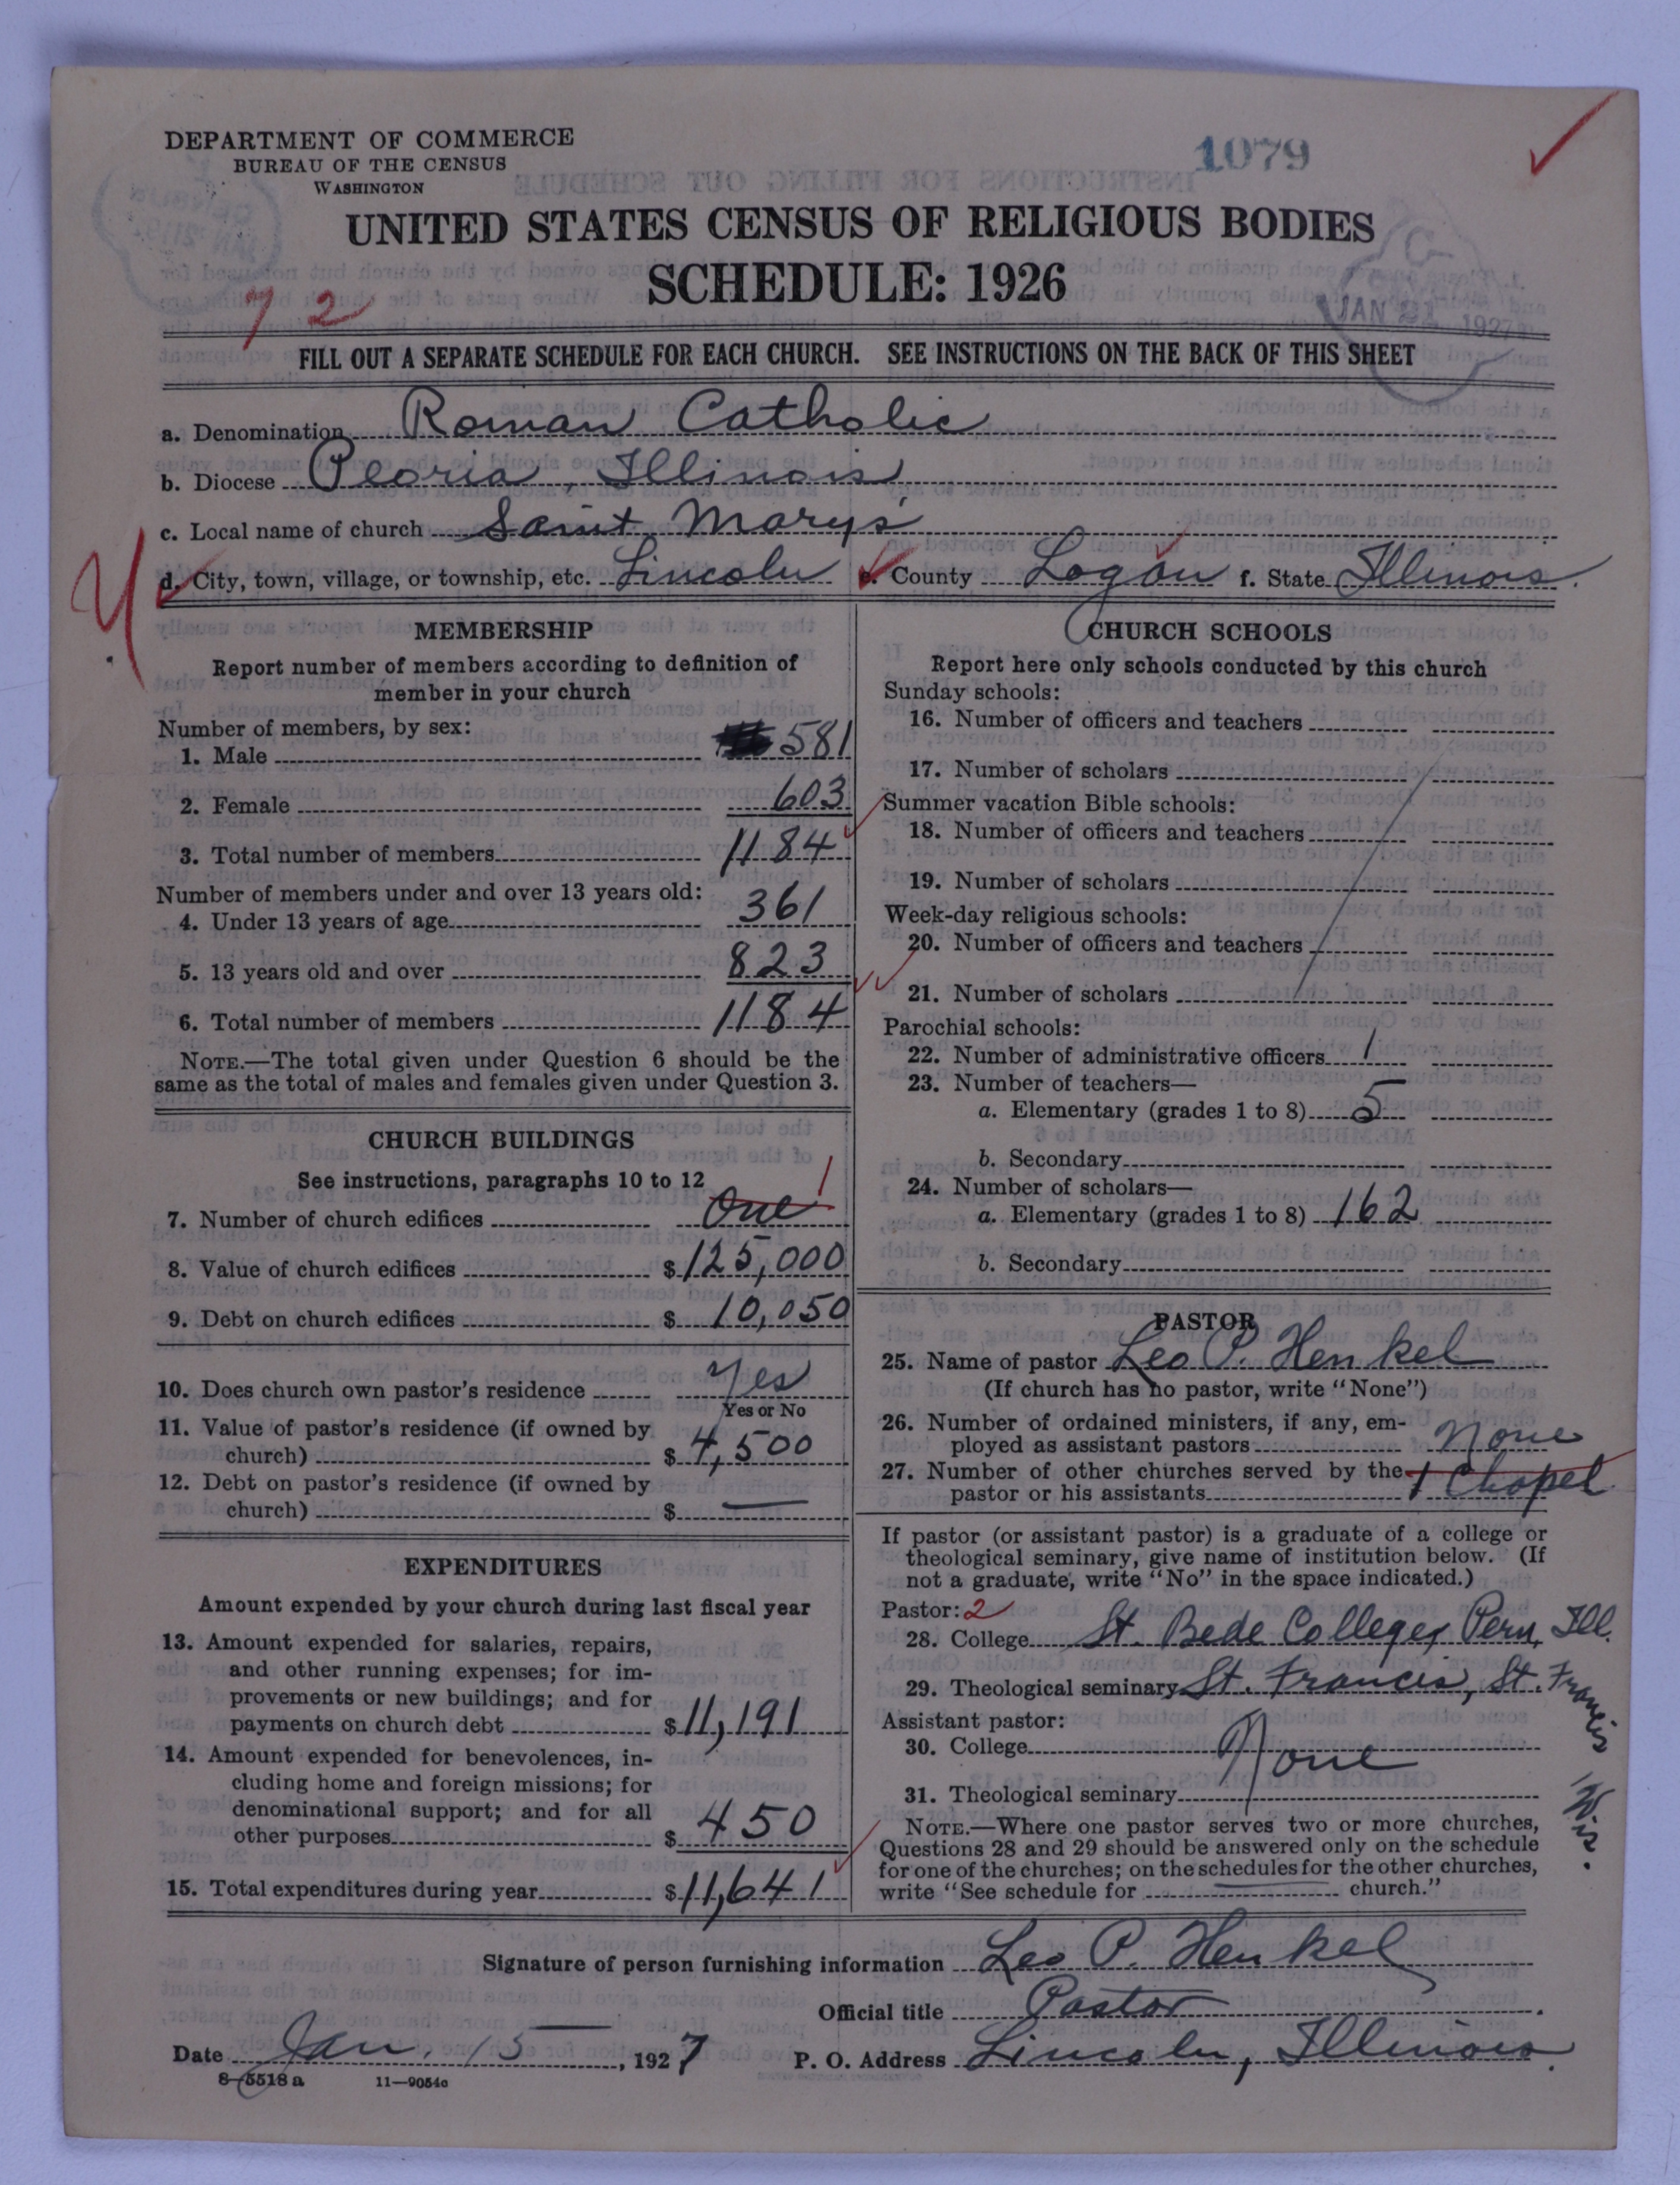 DEPARTMENT OF COMMERCE
BUREAU OF THE CENSUS
WASHINGTON
1079
UNITED STATES CENSUS OF RELIGIOUS BODIES
SCHEDULE: 1926
72
JAN 21 1927
FILL OUT A SEPARATE SCHEDULE FOR EACH CHURCH. SEE INSTRUCTIONS ON THE BACK OF THIS SHEET
a. Denomination Roman Catholic
b. Diocese Peoria, Illinois
c. Local name of church Saint Marys'
d. City, town, village, or township, etc. Lincoln e. County Logan f. State Illinois.
MEMBERSHIP
Report number of members according to definition of
member in your church
Number of members, by sex:
1. Male 581
2. Female 603
3. Total number of members 1184
Number of members under and over 13 years old:
4. Under 13 years of age 361
5. 13 years old and over 823
6. Total number of members 1184
NOTE.—The total given under Question 6 should be the
same as the total of males and females given under Question 3.
CHURCH BUILDINGS
See instructions, paragraphs 10 to 12
7. Number of church edifices One 1
8. Value of church edifices $125,000
9. Debt on church edifices $10,050
10. Does church own pastor's residence Yes
Yes or No
11. Value of pastor's residence (if owned by
church) $4,500
12. Debt on pastor's residence (if owned by
church) $ —
EXPENDITURES
Amount expended by your church during last fiscal year
13. Amount expended for salaries, repairs,
and other running expenses; for im-
provements or new buildings; and for
payments on church debt $11,191
14. Amount expended for benevolences, in-
cluding home and foreign missions; for
denominational support; and for all
other purposes $450
15. Total expenditures during year $11,641
CHURCH SCHOOLS
Report here only schools conducted by this church
Sunday schools:
16. Number of officers and teachers
17. Number of scholars
Summer vacation Bible schools:
18. Number of officers and teachers
19. Number of scholars
Week-day religious schools:
20. Number of officers and teachers
21. Number of scholars
Parochial schools:
22. Number of administrative officers 1
23. Number of teachers—
a. Elementary (grades 1 to 8) 5
b. Secondary
24. Number of scholars—
a. Elementary (grades 1 to 8) 162
b. Secondary
PASTOR
25. Name of pastor Leo P. Henkel
(If church has no pastor, write "None")
26. Number of ordained ministers, if any, em-
ployed as assistant pastors None
27. Number of other churches served by the
pastor or his assistants 1 Chapel
If pastor (or assistant pastor) is a graduate of a college or
theological seminary, give name of institution below. (If
not a graduate, write "No" in the space indicated.)
Pastor: 2
28. College St. Bede College, Peru, Ill.
29. Theological seminary St. Francis, St. Francis Wis.
Assistant pastor:
30. College None
31. Theological seminary
NOTE.—Where one pastor serves two or more churches,
Questions 28 and 29 should be answered only on the schedule
for one of the churches; on the schedules for the other churches,
write "See schedule for — church."
Signature of person furnishing information Leo P. Henkel
Official title Pastor
Date Jan. 15, 1927 P. O. Address Lincoln, Illinois.
8—5518 a 11—9054c